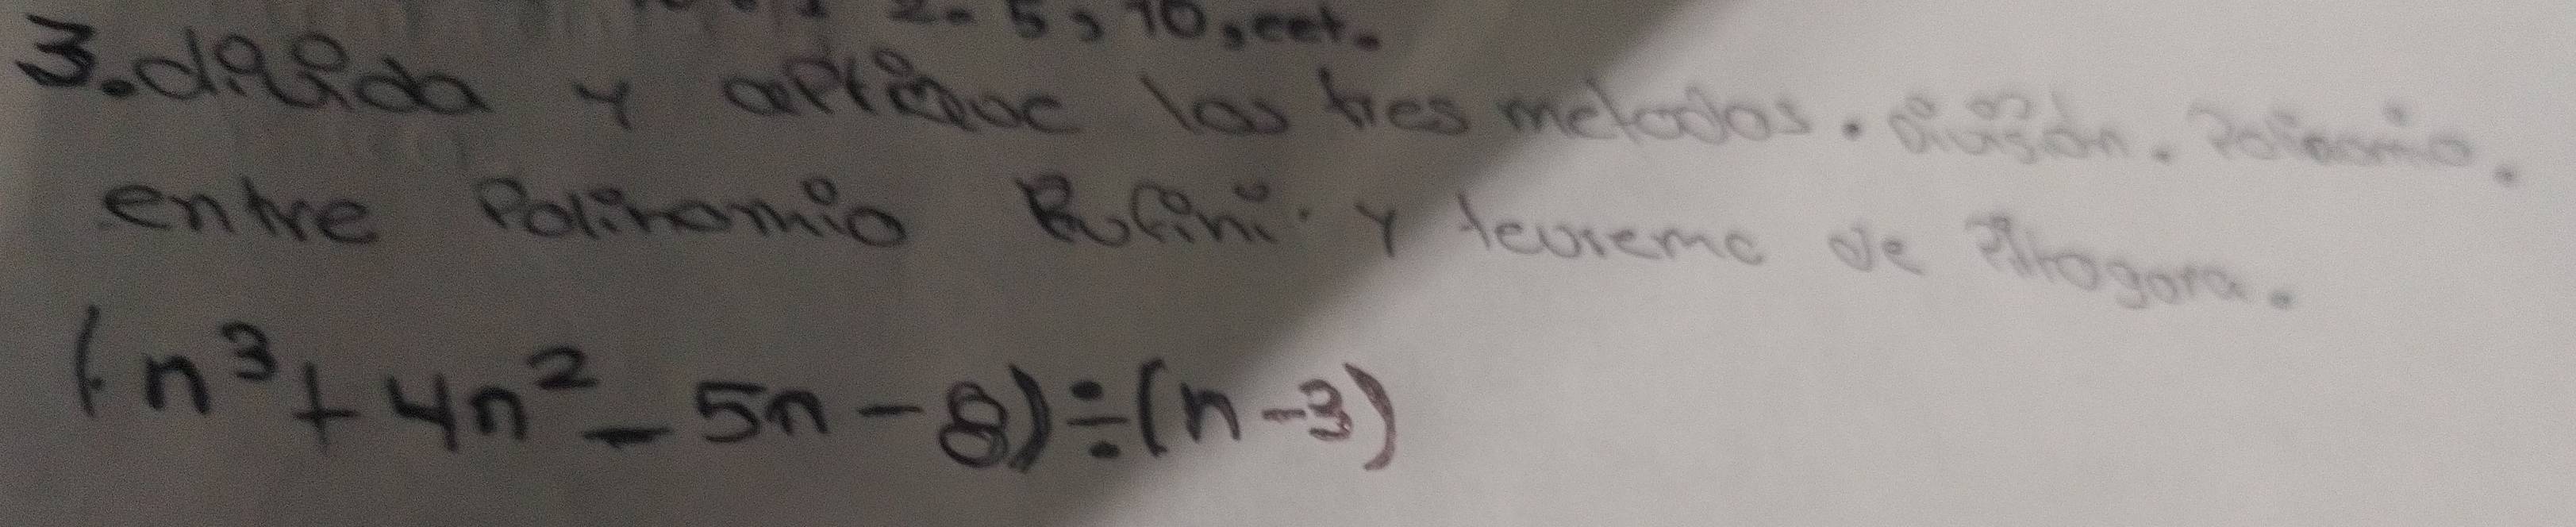 2. 5, 10, eet.
3. divida y aplique los tres metodos. División. Polinomio.
entre Polinomio Rufini. Y teorema de Pitagora.
(n³ + 4n² - 5n - 8) ÷ (n - 3)